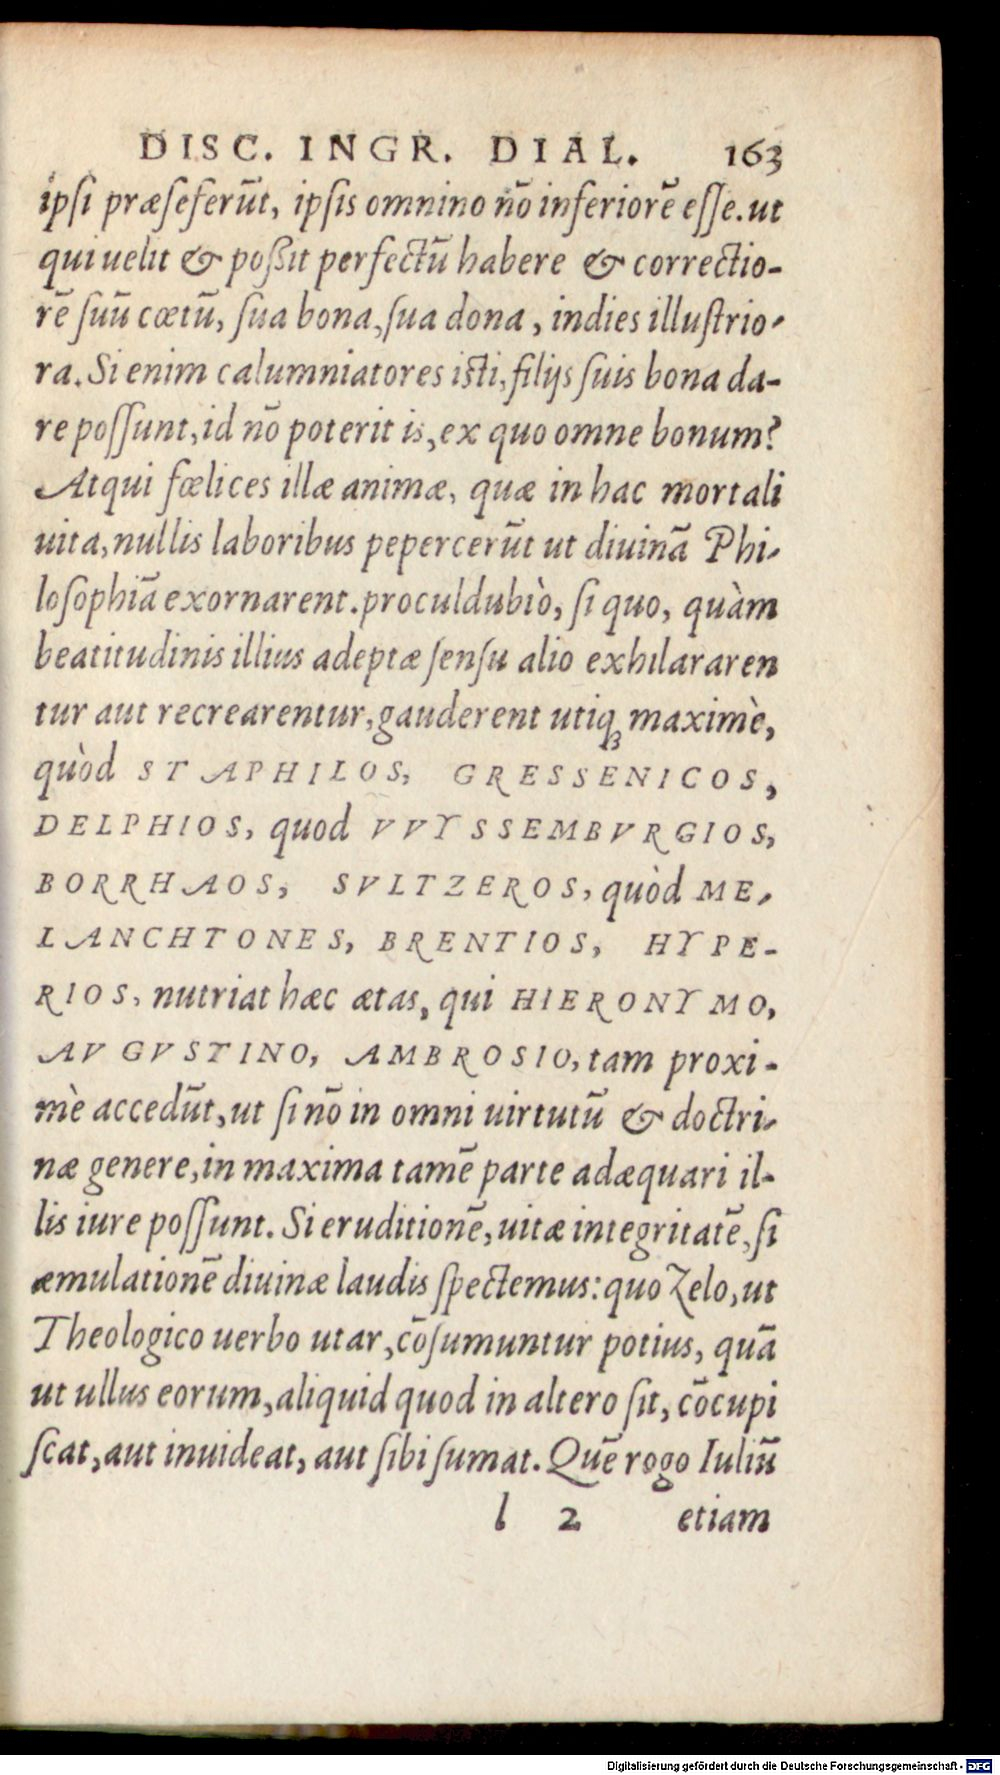 DISC. INGR. DIAL. 163
ipsi præseferūt, ipsis omnino nō inferiorē esse. ut
qui uelit & poßit perfectū habere & correctio-
rē suū cœtū, sua bona, sua dona, indies illustrio-
ra. Si enim calumniatores isti, filijs suis bona da-
re possunt, id nō poterit is, ex quo omne bonum?
Atqui fœlices illæ animæ, quæ in hac mortali
uita, nullis laboribus pepercerūt ut diuinā Phi-
losophiā exornarent. proculdubiò, si quo, quàm
beatitudinis illius adeptæ sensu alio exhilararen
tur aut recrearentur, gauderent utiqꝫ maximè,
quòd STAPHILOS, GRESSENICOS,
DELPHIOS, quod VVYSSEMBVRGIOS,
BORRHAOS, SVLTZEROS, quòd ME-
LANCHTONES, BRENTIOS, HYPE-
RIOS, nutriat hæc ætas, qui HIERONYMO,
AVGVSTINO, AMBROSIO, tam proxi-
mè accedūt, ut si nō in omni uirtutū & doctri-
næ genere, in maxima tamē parte adæquari il-
lis iure possunt. Si eruditionē, uitæ integritatē, si
æmulationē diuinæ laudis spectemus: quo Zelo, ut
Theologico uerbo utar, cōsumuntur potius, quā
ut ullus eorum, aliquid quod in altero sit, cōcupi
scat, aut inuideat, aut sibi sumat. Quē rogo Iuliū
l 2 etiam
Digitalisierung gefördert durch die Deutsche Forschungsgemeinschaft - DFG